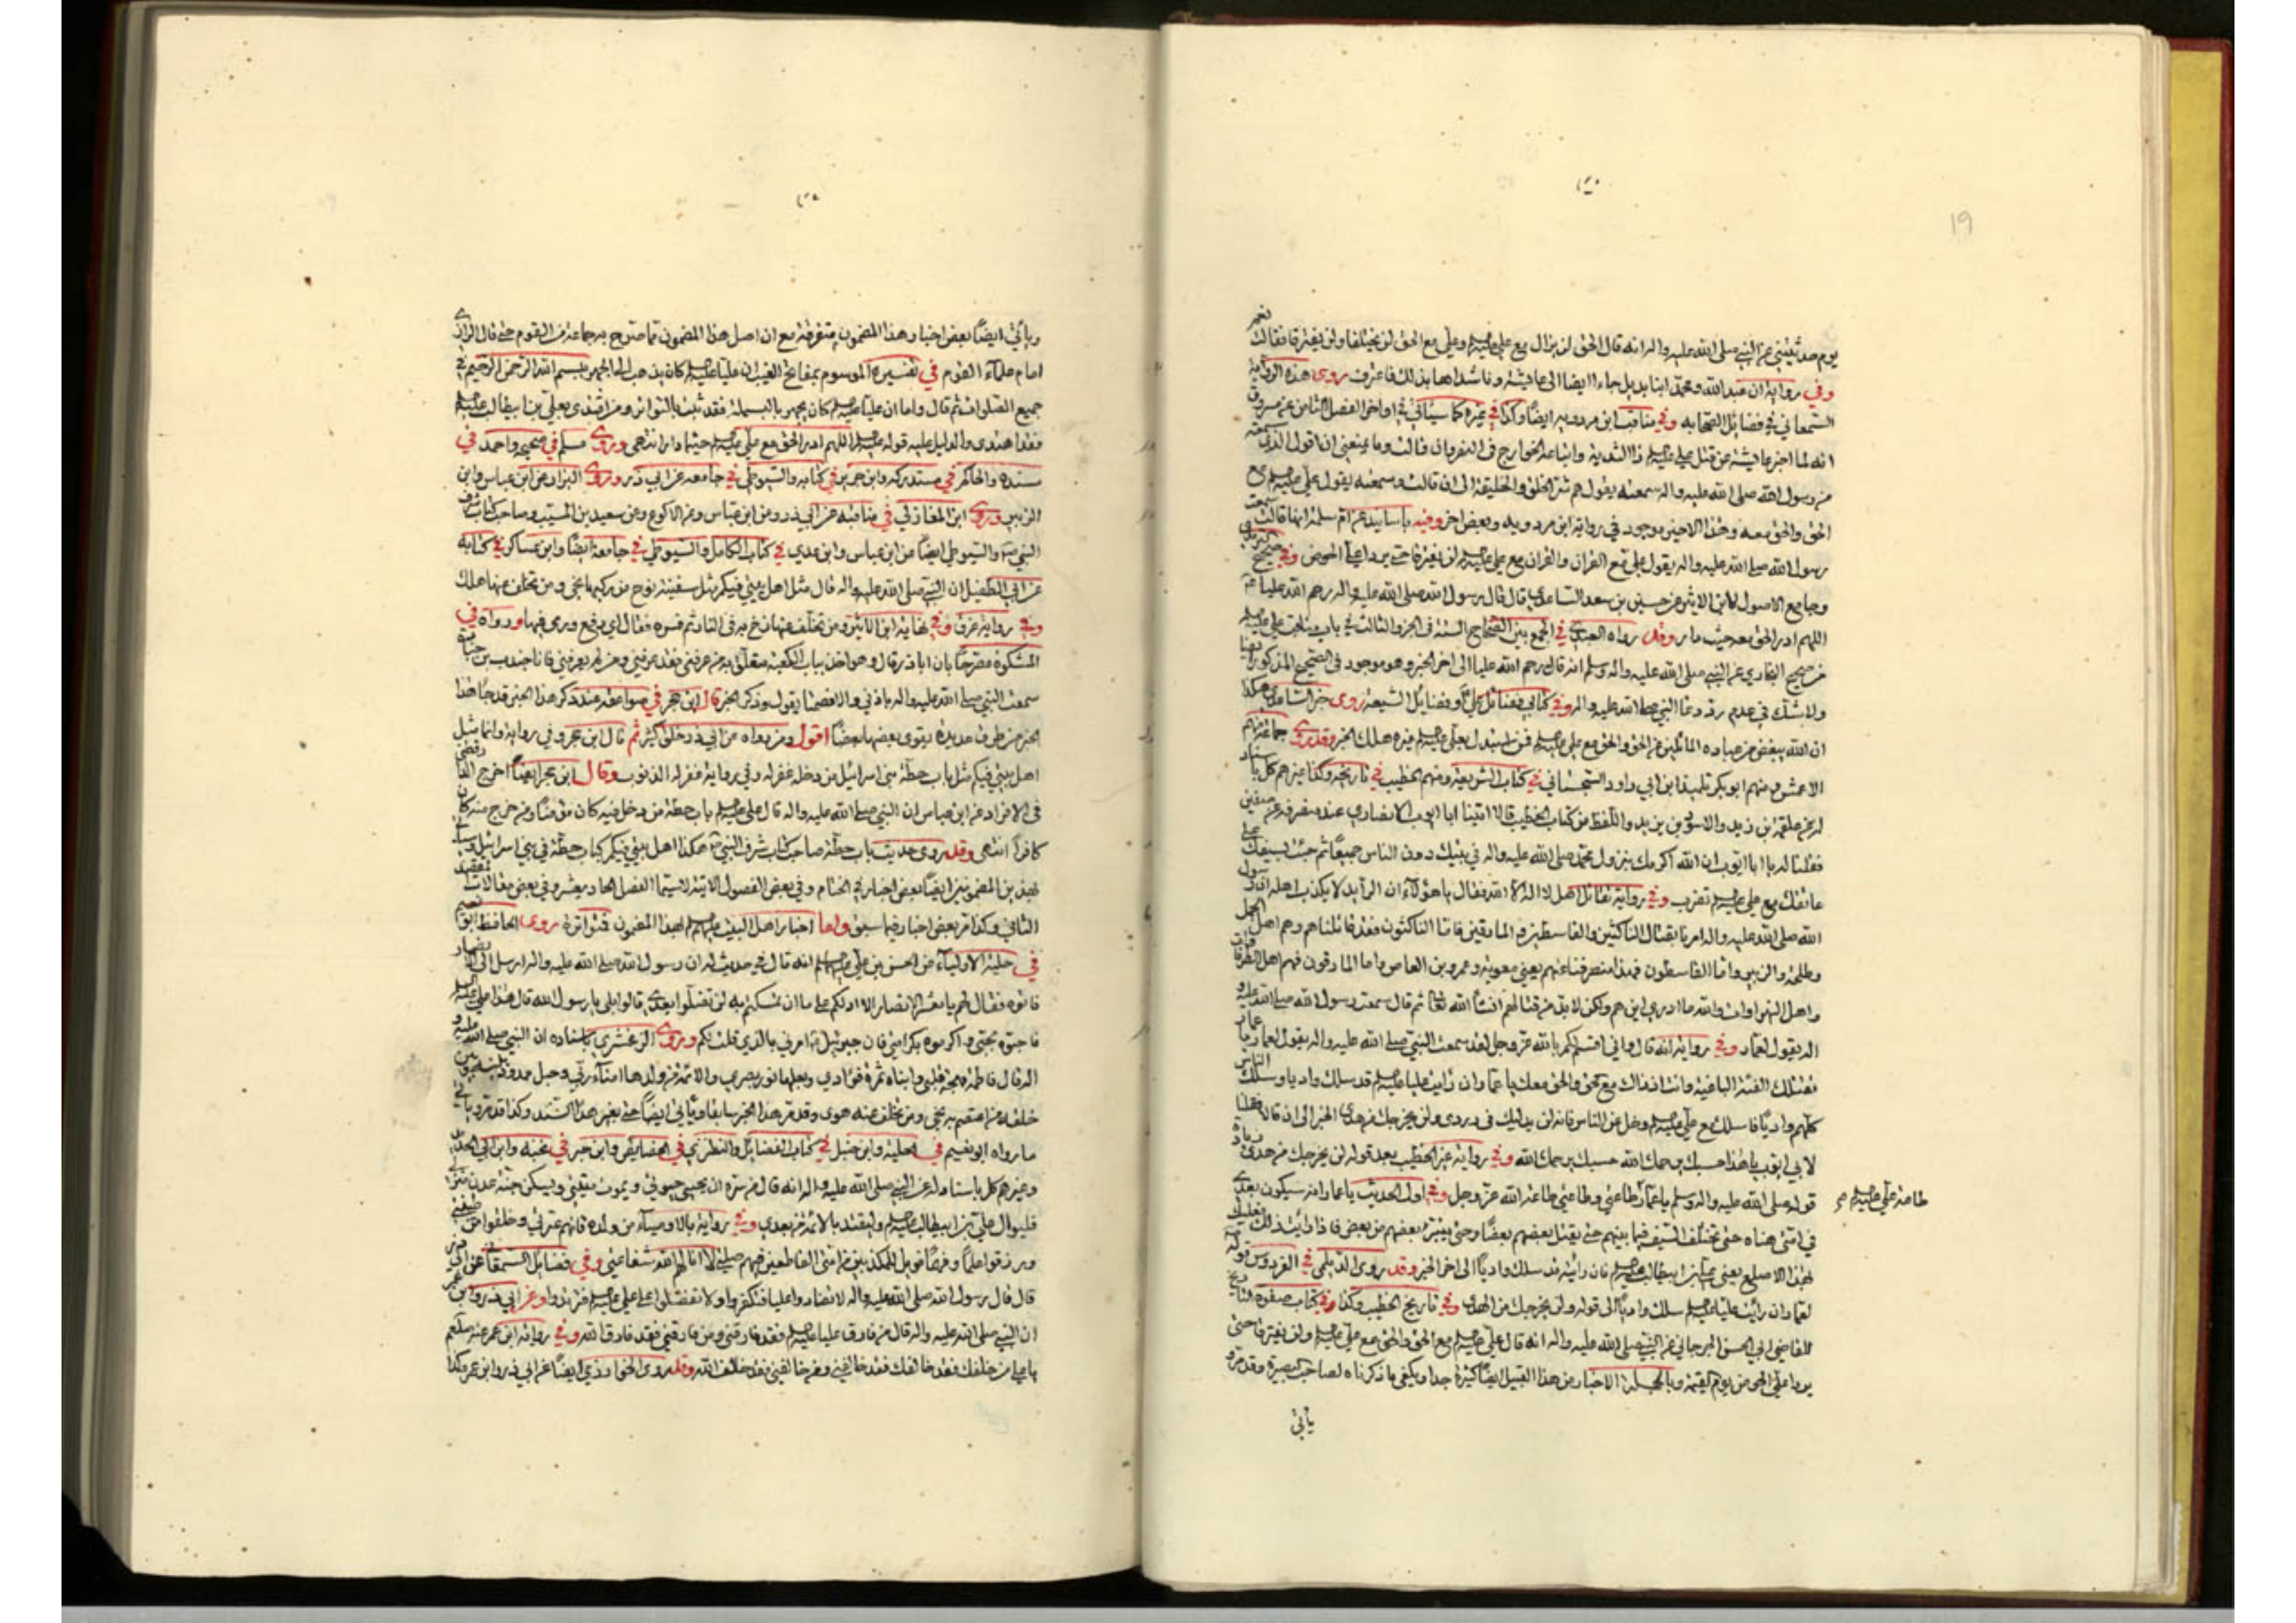 يوم حدثتيني عن النبي صلى الله عليه واله انه قال الحق لن يزال مع علي عليه السلام وعلي مع الحق لن يختلفا ولن يفترقا فقالت نعم
وفي رواية ان عبد الله ومحمد ابنا بديل جاءا ايضا الى عايشة وناشداها بذلك فاعترفت روى هذه الرواية
السمعاني في فضائل الصحابه وفي مناقب ابن مردويه ايضا وكذا في غيره كما سيأتي في اواخر الفصل الثامن عن مسروق
انه لما اخبر عايشة عن قتل علي عليه السلام ذا الثدية واتباعه الخوارج في النهروان قالت وما يمنعني ان اقول الذي سمعته
من رسول الله صلى الله عليه واله سمعته يقول هم شر الخلق والخليقة الى ان قالت وسمعته يقول علي عليه السلام مع
الحق والحق معه وهذا الاخير موجود في رواية ابن مردويه وبعض اخر وفيه باسانيد عن ام سلمة انها قالت سمعت
رسول الله صلى الله عليه واله يقول علي مع القران والقران مع علي عليه السلام لن يفترقا حتى يردا على الحوض وفي صحيح
وجامع الاصول لابن الاثير عن سعد الساعدي قال قال رسول الله صلى الله عليه واله رحم الله عليا
اللهم ادر الحق معه حيث دار وقد رواه العبدري في الجمع بين الصحاح الستة في الجزو الثالث في باب مناقب علي عليه السلام
من صحيح البخاري عن النبي صلى الله عليه واله وسلم انه قال رحم الله عليا الى اخر الخبر وهو موجود في الصحيح المذكور ايضا
ولا شك في عدم رد دعا النبي صلى الله عليه واله وفي كتابي فضائل علي وفضايل الشيعة روى خبر الشامل هكذا
ان الله يبغض من عباده المائلين عن الحق والحق مع علي عليه السلام فمن استبدل بعلي عليه السلام غيره هلك الخبر وقد روى جماعة منهم
الاعمش ومنهم ابو بكر تلميذ ابن ابي داود السجستاني في كتاب الشريعة ومنهم الخطيب في تاريخه وكذا غيرهم كل باسناد
له عن علقمة بن زيد والاسود بن يزيد واللفظ من كتاب الخطيب قالا اتينا ابا ايوب الانصاري عند منصرفه عن صفين
فقلنا له يا ابا ايوب ان الله اكرمك بنزول محمد صلى الله عليه واله في بيتك دون الناس جميعا ثم جئت بسيفك على
عاتقك مع علي عليه السلام تضرب وفي رواية تقاتل اهل لا اله الا الله فقال يا هؤلاء ان الرايد لا يكذب اهله ان رسول
الله صلى الله عليه واله امرنا بقتال الناكثين والقاسطين والمارقين فاما الناكثون فقد قاتلناهم وهم اهل الجمل
وطلحة والزبير واما القاسطون فهذا منصرفنا عنهم يعني معوية وعمرو بن العاص واما المارقون فهم اهل الطرقات
واهل النهروانات والله ما ادري اين هم ولكن لا بد من قتالهم انشأ الله تعالى ثم قال سمعت رسول الله صلى الله عليه و
اله يقول لعمار وفي رواية انه قال واني اقسم لكم بالله عز وجل لقد سمعت النبي صلى الله عليه واله يقول لعمار يا عمار
تقتلك الفئة الباغية وانت اذ ذاك مع الحق والحق معك يا عمار ان رايت عليا عليه السلام قد سلك واديا وسلك الناس
كلهم واديا فاسلك مع علي عليه السلام وخل عن الناس فانه لن يدليك في ردى ولن يخرجك من هدى الخبر الى ان قالا فقلنا
لابي ايوب يا هذا حسبك يرحمك الله حسبك يرحمك الله وفي رواية غير الخطيب بعد قوله لن يخرجك من هدى زيادة
قوله صلى الله عليه واله وسلم يا عمار طاعتي وطاعتي طاعة الله عز وجل وفي اول الحديث يا عمار انه سيكون بعدي
طاعة علي عليه السلام
في امتي هناه حتى يختلف السيف فيما بينهم حتى يقتل بعضهم بعضا وحتى يتبرأ بعضهم من بعض فاذا رايت ذلك فعليك
بهذا الاصلع يعني علي بن ابيطالب عليه السلام فان رايته قد سلك واديا الى اخر الخبر وقد روى الديلمي في الفردوس قوله
لعمار ان رايت عليا عليه السلام سلك واديا الى قوله ولن يخرجك من الهدى وفي تاريخ الخطيب وكذا وفي كتاب صفوة التاريخ
للقاضي ابي الحسن الجرجاني عن النبي صلى الله عليه واله انه قال علي عليه السلام مع الحق والحق مع علي عليه السلام ولن يفترقا حتى
يردا علي الحوض يوم القيمة وبالجملة الاخبار من هذا القبيل ايضا كثيرة جدا ويكفي ما ذكرناه لصاحب بصيرة وقد مر و
يأتي
ويأتي ايضا بعض اخبار وهذا المضمون متفرقة مع ان اصل هذا المضمون مما صرح به جماعة من القوم حتى قال الرازي
امام علماء القوم في تفسيره الموسوم بمفاتح الغيب ان عليا عليه السلام كان يذهب الى الجهر ببسم الله الرحمن الرحيم في
جميع الصلوات ثم قال واما ان عليا عليه السلام كان يجهر بالبسملة فقد ثبت بالتواتر ومن اقتدى بعلي بن ابيطالب عليه السلام
فقد اهتدى والدليل عليه قوله عليه السلام اللهم ادر الحق مع علي عليه السلام حيثما دار انتهى وروى مسلم في صحيحه واحمد في
مسنده والحاكم في مستدركه وابن جرير في كتابه والسيوطي في جامعه عن ابي ذر وروى البزاد عن ابن عباس وابن
الزبير وروى ابن المغازلي في مناقبه عن ابي ذر وعن ابن عباس وعن الاكوع وعن سعيد بن المسيب وصاحب كتاب شرف
النبي والسيوطي ايضا عن ابن عباس وابن عدي في كتاب الكامل والسيوطي في جامعه ايضا وابن عساكر في كتابه
عن ابي الطفيل ان النبي صلى الله عليه واله قال مثل اهل بيتي فيكم مثل سفينة نوح من ركبها نجى ومن تخلف عنها هلك
وفي رواية غرق وفي نهاية ابن الاثير ومن تخلف عنها زخ به في النار ثم فسره فقال اي دفع ورمى فيها ورواه في
المشكوة مصرحا بان اباذر قال وهو اخذ بباب الكعبة متعلق به من عرفني فقد عرفني ومن لم يعرفني فانا جندب بن جنادة
سمعت النبي صلى الله عليه واله باذني والا فصمتا يقول وذكر الخبر قال ابن حجر في صواعقه عند ذكر هذا الخبر قد جاء هذا
الخبر من طرق عديدة يقوى بعضها بعضا اقول ومن رواه عن ابي ذر خلق كثير ثم قال ابن حجر وفي رواية وانما مثل
اهل بيتي فيكم مثل باب حطة بني اسرائيل من دخله غفر له وفي رواية غفر له الذنوب وقال ابن حجر ايضا اخرج الدارقطني
في الافراد عن ابن عباس ان النبي صلى الله عليه واله قال علي عليه السلام باب حطة من دخل فيه كان مؤمنا ومن خرج منه كان
كافرا انتهى وقد روى حديث باب حطة صاحب كتاب شرف النبي هكذا اهل بيتي فيكم كباب حطة في بني اسرائيل
لهذين المضمونين ايضا بعض اخبار في الختام وفي بعض الفصول الاتية لاسيما الفصل الحاديعشر وفي بعض مقالات المقصد
الثاني وكذا مر بعض اخبار فيما سبق واما اخبار اهل البيت عليهم السلام لهذا المضمون فمتواترة روى الحافظ ابو نعيم
في حلية الاولياء عن الحسن بن علي عليهما السلام انه قال في حديث له ان رسول الله صلى الله عليه واله ارسل الى الانصار
فاتوه فقال لهم يا معشر الانصار الا ادلكم على ما ان تمسكتم به لن تضلوا بعدي قالوا بلى يا رسول الله قال هذا علي عليه السلام
فاحبوه بحبي واكرموه بكرامتي فان جبرئيل امرني بالذي قلت لكم وروى الزمخشري باسناده ان النبي صلى الله عليه و
اله قال فاطمة مهجة قلبي وابناه ثمرة فؤادي وبعلها نور بصري والائمة من ولدها امناء ربي وحبل ممدود بينه وبين
خلقه من اعتصم به نجى ومن تخلف عنه هوى وقد مر هذا الخبر سابقا ويأتي ايضا حتى بغير هذا السند وكذا قد مر ويأتي
ما رواه ابو نعيم في الحلية وابن حنبل في كتاب الفضائل والنطنزي في الخصائص وابن جبر في نخبه وابن ابي الحديد
وغيرهم كل باسناد له عن النبي صلى الله عليه واله انه قال من سره ان يحيى حيوتي ويموت ميتتي ويسكن جنة عدن
فليوال علي بن ابيطالب عليه السلام وليقتد بالائمة من بعدي وفي رواية بالاوصيآء من ولده فانهم عترتي وخلقوا من طينتي
ورزقوا علما وفهما فويل للمكذبين من امتي القاطعين فيهم صلتي لا انالهم الله شفاعتي وفي فضائل السمعاني عن ابي ذر
قال قال رسول الله صلى الله عليه واله لا تضادوا عليا فتكفروا ولا تفضلوا على علي عليه السلام فترتدوا وعن ابي ذر وابن عمر
ان النبي صلى الله عليه واله قال من فارق عليا عليه السلام فقد فارقني ومن فارقني فقد فارق الله وفي رواية ابن عمر عنه صلعم
يا علي من خالفك فقد خالفني ومن خالفني فقد خالف الله وقد روى الخوارزمي ايضا عن ابي ذر وابن عمر وكذا